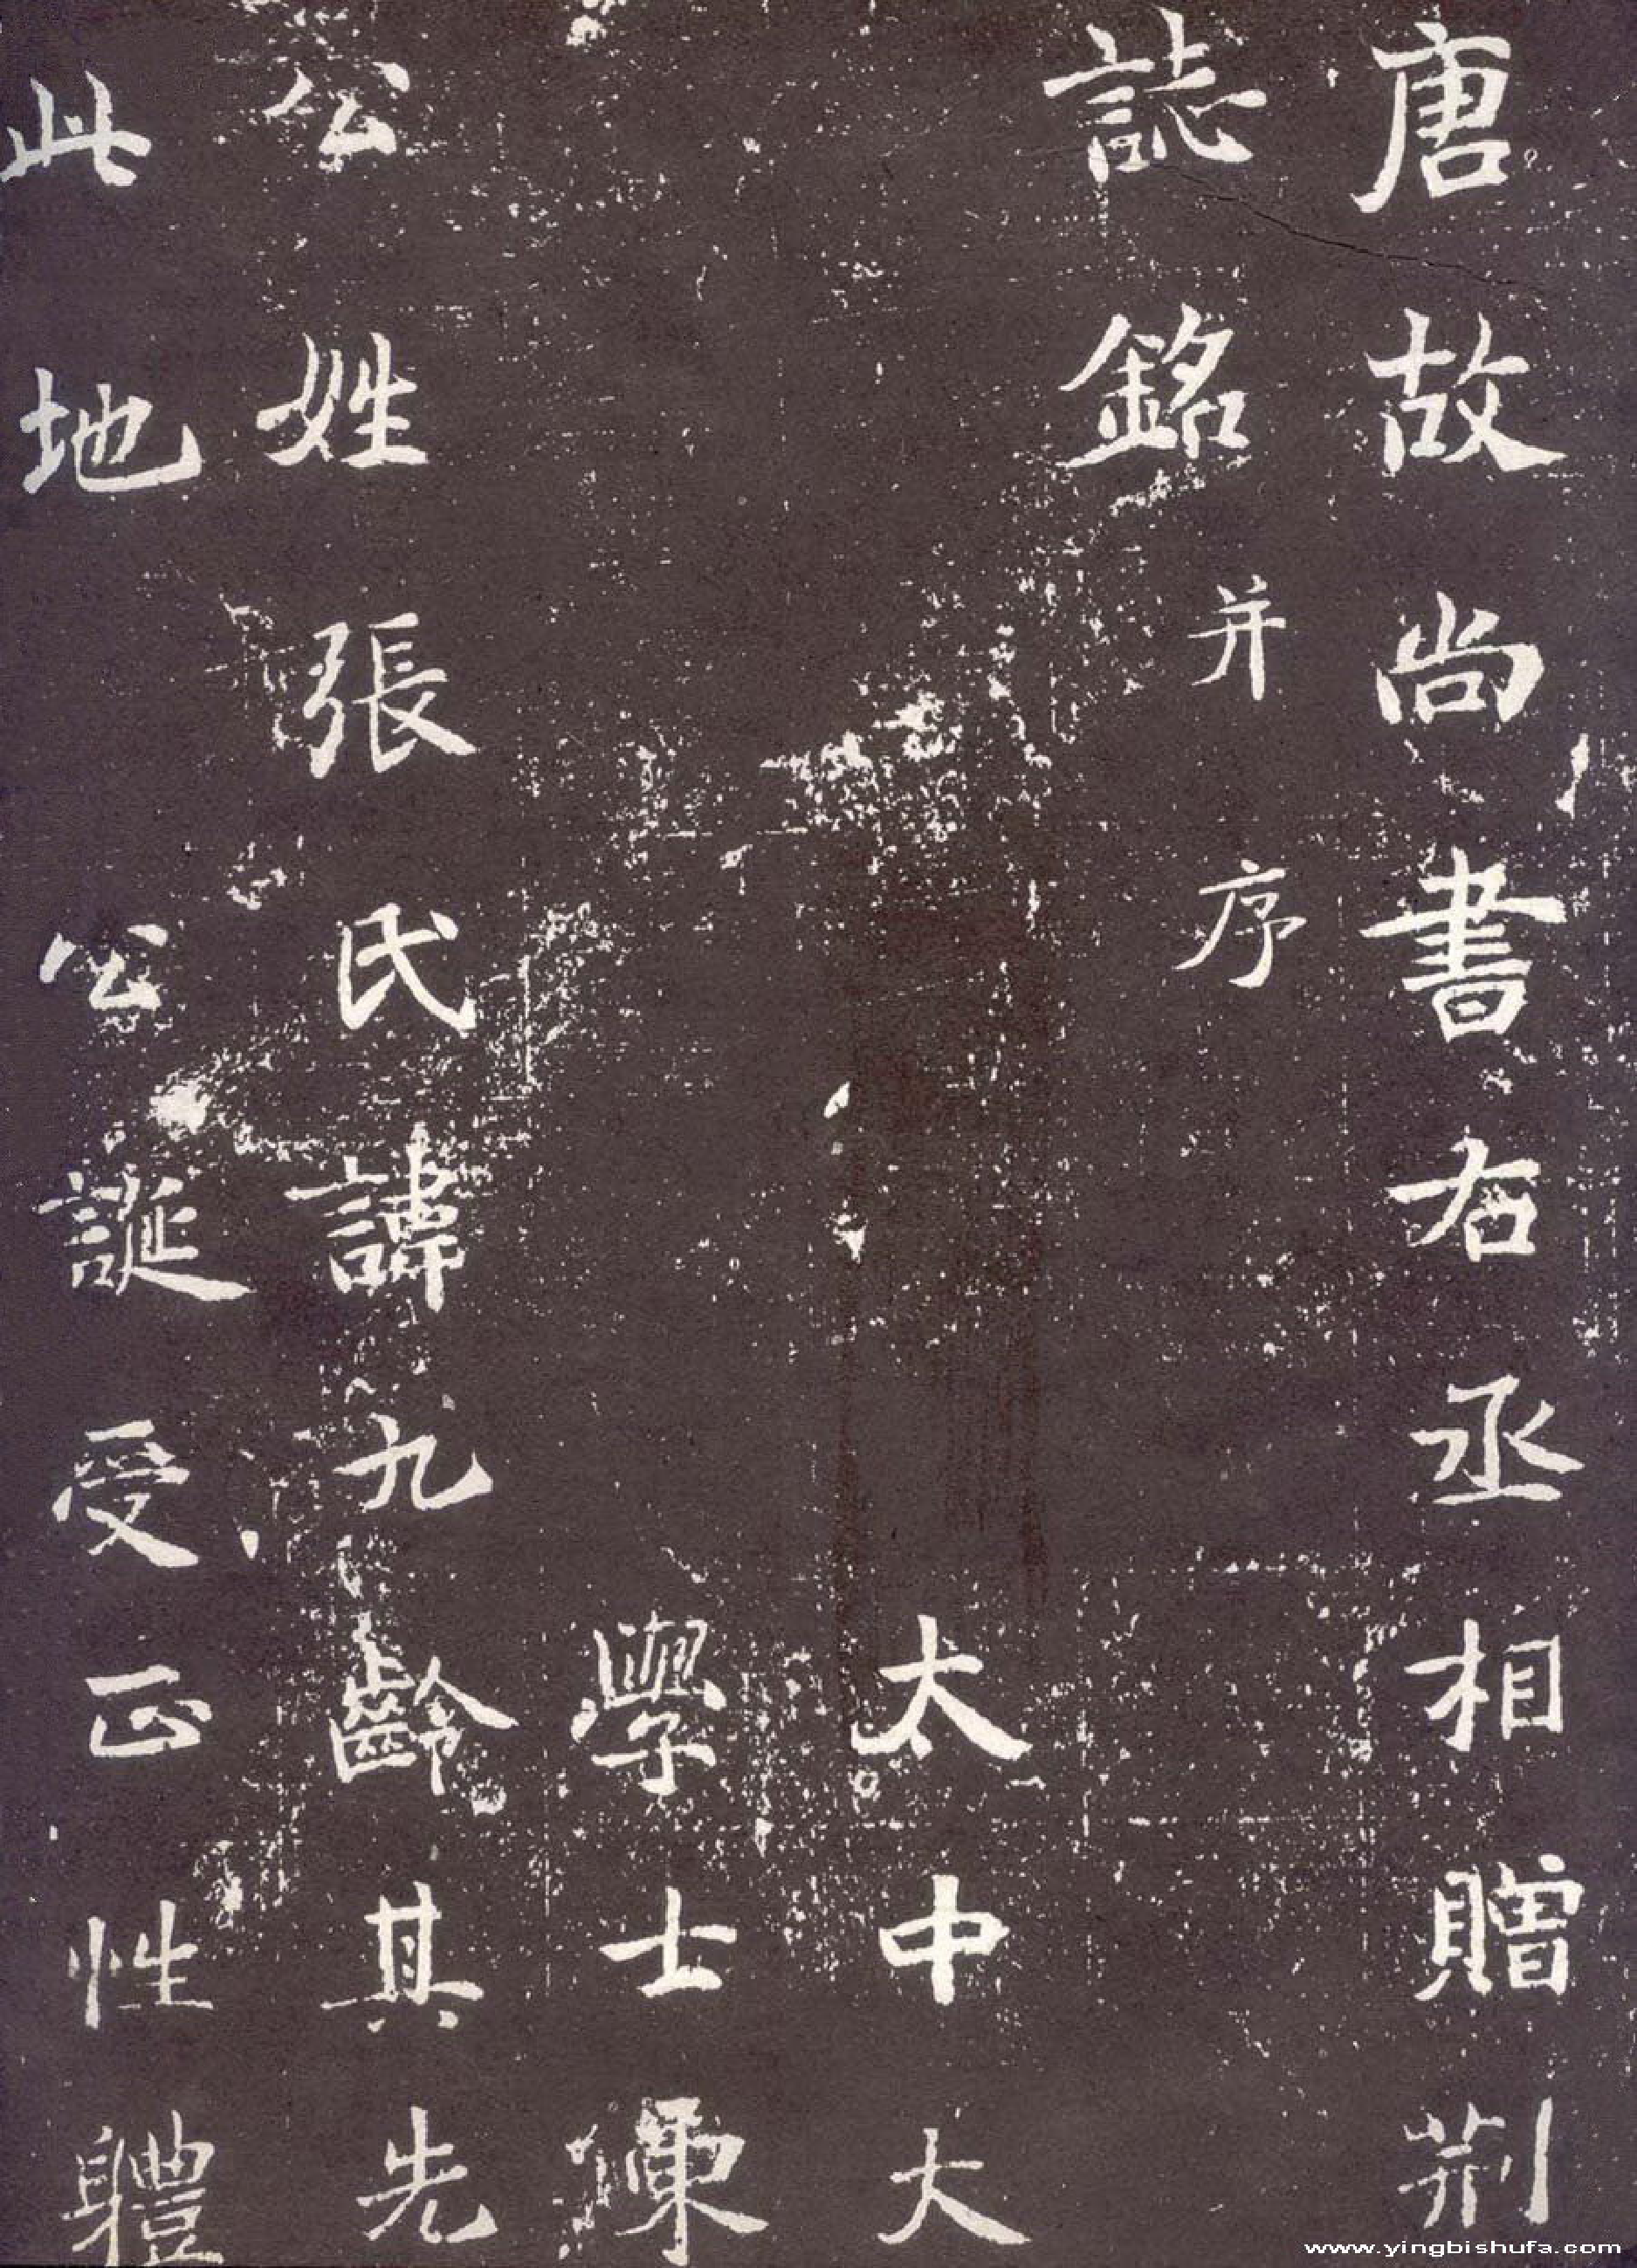 唐故尚書右丞相贈荆
誌銘并序
太中大
學士
公姓張氏諱九齡其先
此地 公誕受正性體
www.yingbishufa.com